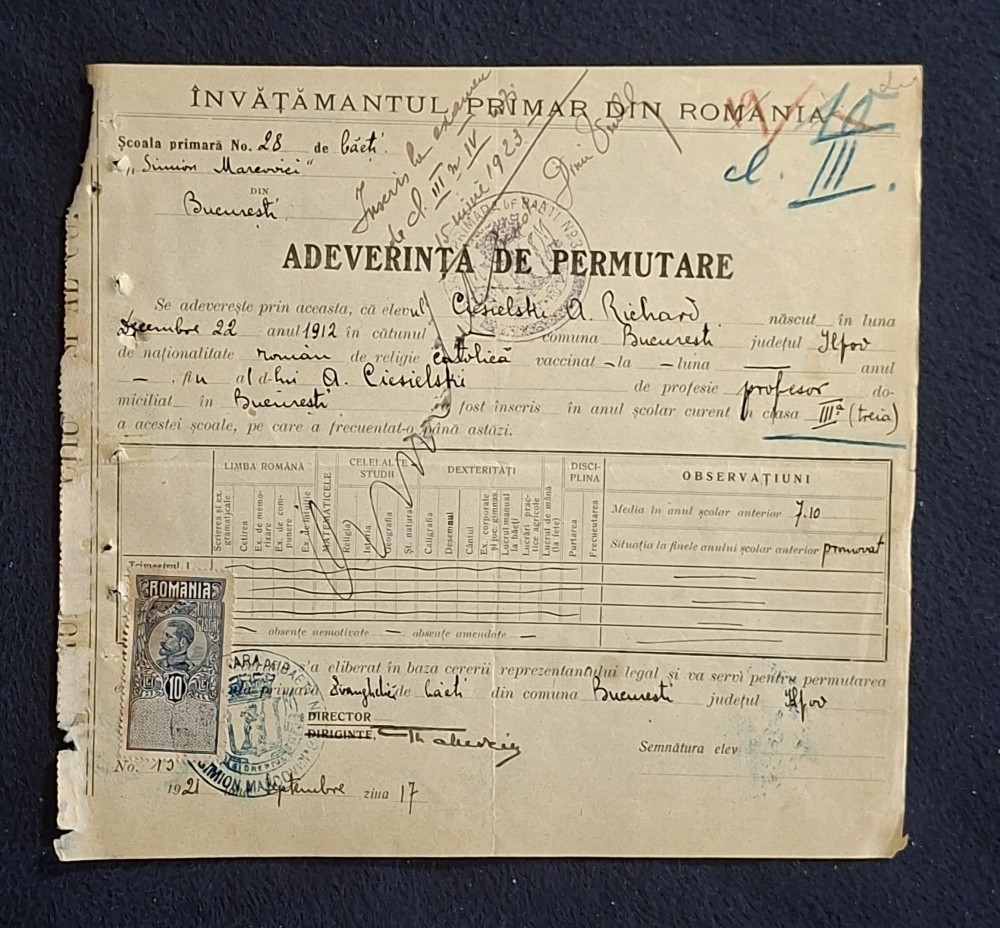 ÎNVĂȚĂMANTUL PRIMAR DIN ROMANIA
cl. III.
Școala primară No. 28 de băeți
„Simion Marcovici"
DIN
București
Înscris la examen
de cl. III și IV
15 iunie 1923
ADEVERINȚA DE PERMUTARE
Se adeverește prin aceasta, că elevul Ciesielski A. Richard născut în luna
Decembre 22 anul 1912 în cătunul comuna București județul Ilfov
de naționalitate român de religie catolică vaccinat la luna anul
fiu al d-lui A. Ciesielski de profesie profesor do-
miciliat în București fost înscris în anul școlar curent în clasa IIIa (treia)
a acestei școale, pe care a frecuentat-o până astăzi.
LIMBA ROMÂNĂ CELELALTE STUDII DEXTERITĂȚI DISCI-PLINA OBSERVAȚIUNI
Scrierea și ex. gramaticale
Cetirea
Ex. de memorizare
Ex. de compunere
Ex. de intuiție
MATEMATICELE
Religia
Istoria
Geografia
Șt. naturale
Caligrafia
Desemnul
Cântul
Ex. corporale și joc. gimnas.
Lucrul manual la băeți
Lucrări practice agricole
Lucrul de mână (la fete)
Purtarea
Frecuentarea
Media în anul școlar anterior 7.10
Situația la finele anului școlar anterior promovat
Trimestrul I
absențe nemotivate — absențe amendate —
ROMANIA
TIMBRU FISCAL
10
s'a eliberat în baza cererii reprezentantului legal și va servi pentru permutarea
primară Evanghelică de băeți din comuna București județul Ilfov
DIRECTOR
DIRIGINTE,
Semnătura elev
No.
1921 Septembre ziua 17